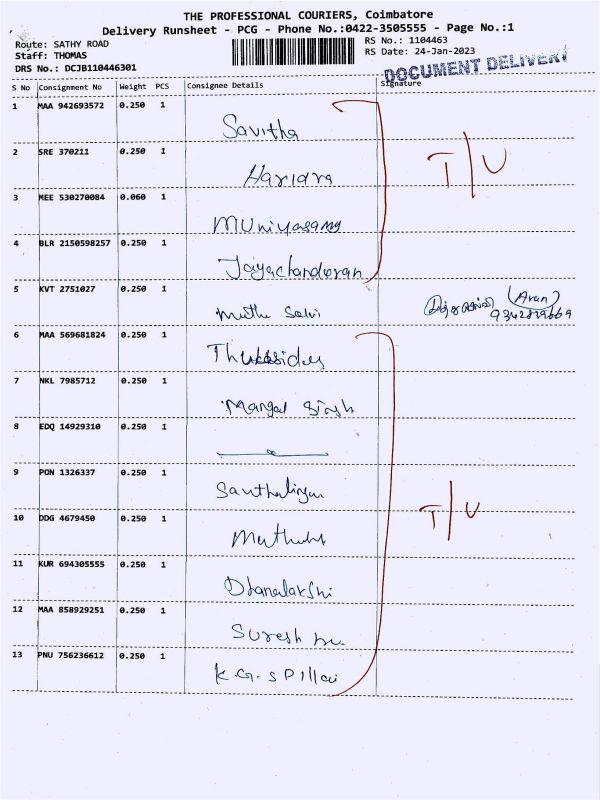 THE PROFESSIONAL COURIERS, Coimbatore
Delivery Runsheet - PCG - Phone No.:0422-3505555 - Page No.:1
Route: SATHY ROAD
Staff: THOMAS
DRS No.: DCJB110446301
RS No.: 1104463
RS Date: 24-Jan-2023
DOCUMENT DELIVERY
S No Consignment No Weight PCS Consignee Details Signature
1 MAA 942693572 0.250 1
Savitha
2 SRE 370211 0.250 1
Harida
T/U
3 MEE 530270084 0.060 1
Muniyasamy
4 BLR 2150598257 0.250 1
Jayachanderan
5 KVT 2751027 0.250 1
Muthu Selvi
(Arun)
6 MAA 569681824 0.250 1
7 NKL 7985712 0.250 1
Mangal Singh
8 EDQ 14929310 0.250 1
9 PON 1326337 0.250 1
Santhalingam
10 DDG 4679450 0.250 1
T/U
11 KUR 694305555 0.250 1
Dhanalakshi
12 MAA 858929251 0.250 1
Suresh
13 PNU 756236612 0.250 1
K.G.S Pillai